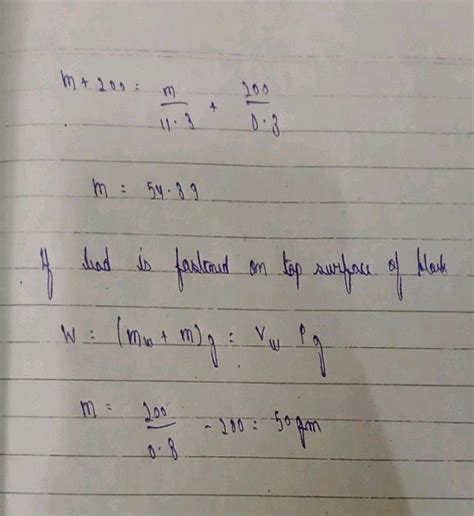 m + 200 = m/11.3 + 200/0.8
m = 54.89
If lead is fastened on top surface of block
W = (m_w + m)g = V_w ρ g
m = 200/0.8 - 200 = 50 gm